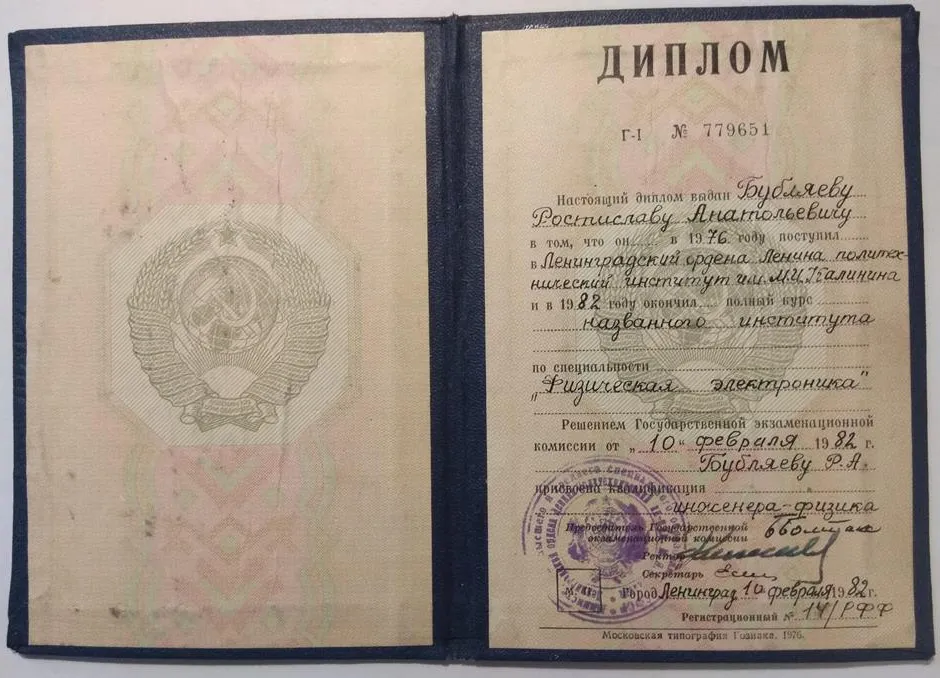 ДИПЛОМ
Г-I № 779651
Настоящий диплом выдан Бубляеву
Ростиславу Анатольевичу
в том, что он в 1976 году поступил
в Ленинградский ордена Ленина политех-
нический институт им. М.И. Калинина
и в 1982 году окончил полный курс
названного института
по специальности
"Физическая электроника"
Решением Государственной экзаменационной
комиссии от „10“ февраля 1982 г.
Бубляеву Р.А.
присвоена квалификация
инженера-физика
Председатель Государственной
экзаменационной комиссии
Ректор
Секретарь
Город Ленинград 10 февраля 1982 г.
Регистрационный № 14/РФФ
Московская типография Гознака. 1976.